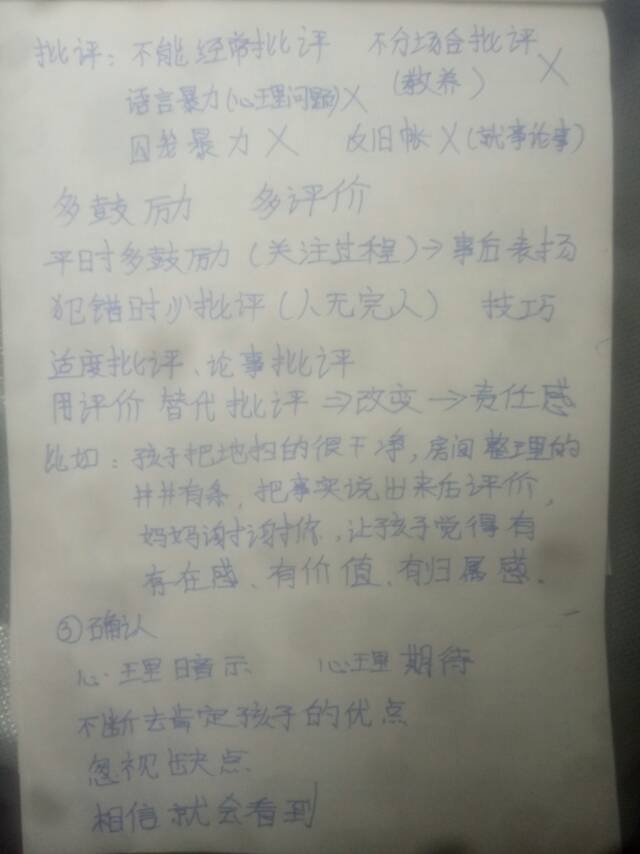 批评：不能经常批评 不分场合批评
(教养) ×
语言暴力(心理问题)×
暴力× 反旧帐×(就事论事)
多鼓励 多评价
平时多鼓励(关注过程)→事后表扬
犯错时少批评(人无完人) 技巧
适度批评、论事批评
用评价替代批评⇒改变→责任感
比如：孩子把地扫的很干净，房间整理的
井井有条，把事实说出来后评价，
妈妈谢谢你，让孩子觉得有
存在感、有价值、有归属感．
③确认
心理暗示 心理期待
不断去肯定孩子的优点
忽视缺点
相信就会看到